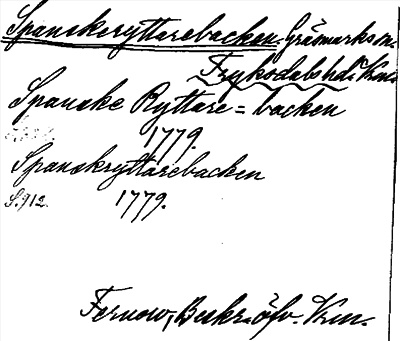 Spanskeryttarebacken. Gräsmarks sn.
Fryksdals hd. Vrml.
Spanske Ryttare=backen
1779.
Spanskryttarebacken
S. 912. 1779.
Fernow, Beskr. öfv. Vrm.